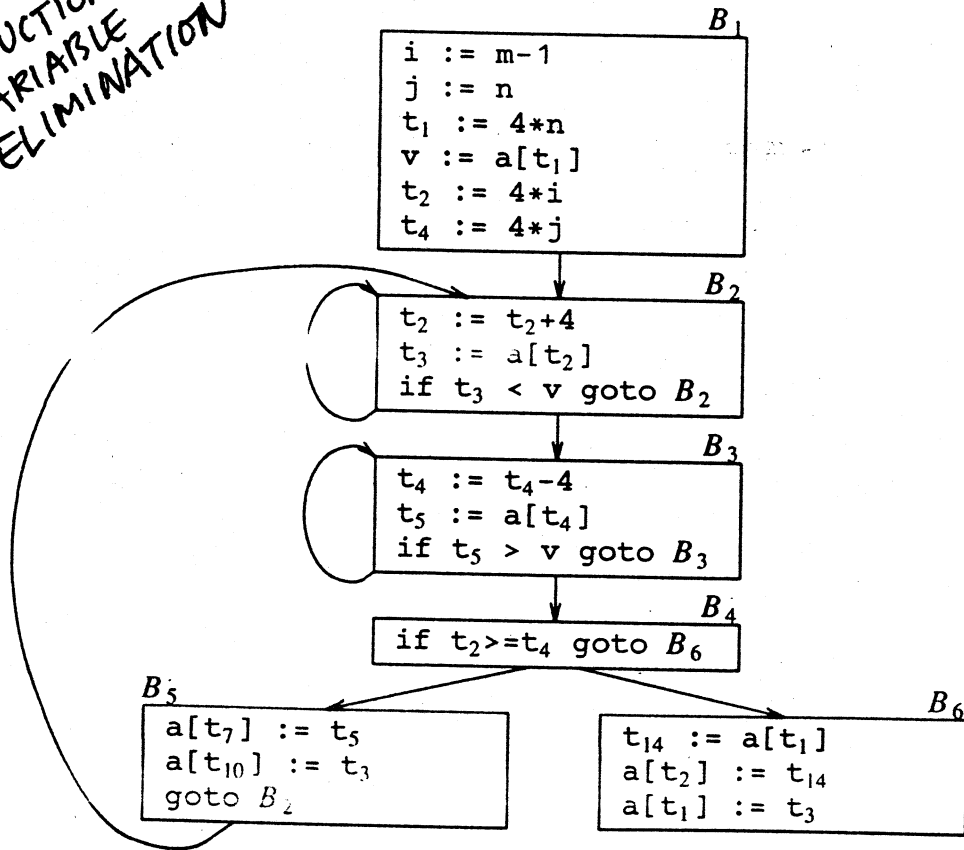 ELIMINATION
B₁
i := m-1
j := n
t₁ := 4*n
v := a[t₁]
t₂ := 4*i
t₄ := 4*j
B₂
t₂ := t₂+4
t₃ := a[t₂]
if t₃ < v goto B₂
B₃
t₄ := t₄-4
t₅ := a[t₄]
if t₅ > v goto B₃
B₄
if t₂>=t₄ goto B₆
B₅
a[t₇] := t₅
a[t₁₀] := t₃
goto B₂
B₆
t₁₄ := a[t₁]
a[t₂] := t₁₄
a[t₁] := t₃